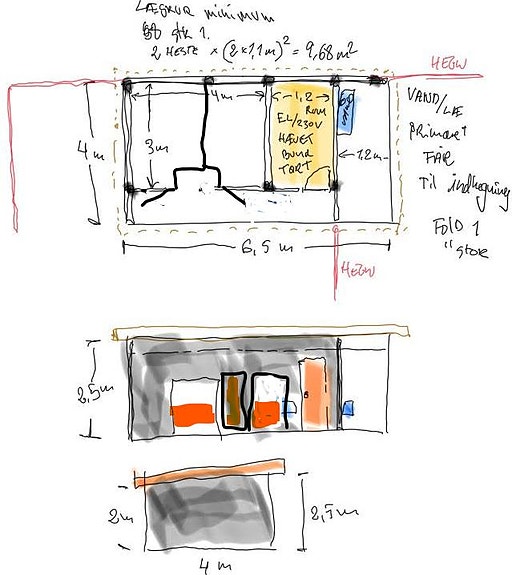 LÆSKUR minimum
stk 1.
2 HESTE × (2×1,1m)² = 9,68m²
HEGN
4m
1,2
RUM
EL/230V
HÆVET
BUND
TØRT
VAND/LÆ
primært
FÅR
Til indhegning
FOLD 1
"store
4m
3m
1.2m
6,5 m
HEGN
2,5m
2m
2,5m
4 m